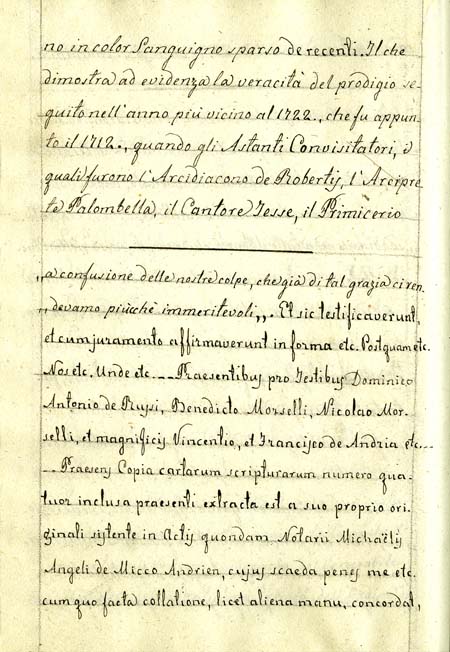 no in color Sanguigno sparso de recenti. Il che
dimostra ad evidenza la veracità del prodigio se-
guito nell'anno più vicino al 1722., che fu appun-
to il 1712., quando gli Astanti Convisitatori, i
quali furono l'Arcidiacono de Robertij, l'Arcipre
te Palombella, il Cantore Iesse, il Primicerio
„a confusione delle nostre colpe, che già di tal grazia ci ren
„devamo piucchè immeritevoli„. Et sic testificaverunt,
et cum juramento affirmaverunt in forma etc. Postquam etc.
Nos etc. Unde etc. __ Praesentibus pro Testibus Dominico
Antonio de Ruysi, Benedicto Morselli, Nicolao Mor-
selli, et magnificis Vincentio, et Francisco de Andria etc. __
__ Praesens Copia cartarum scripturarum numero qua-
tuor inclusa praesenti extracta est a suo proprio ori-
ginali sistente in Actis quondam Notarii Michaëlis
Angeli de Micco Andrien, cujus scaeda penes me etc.
cum quo facta collatione, licet aliena manu, concordat,